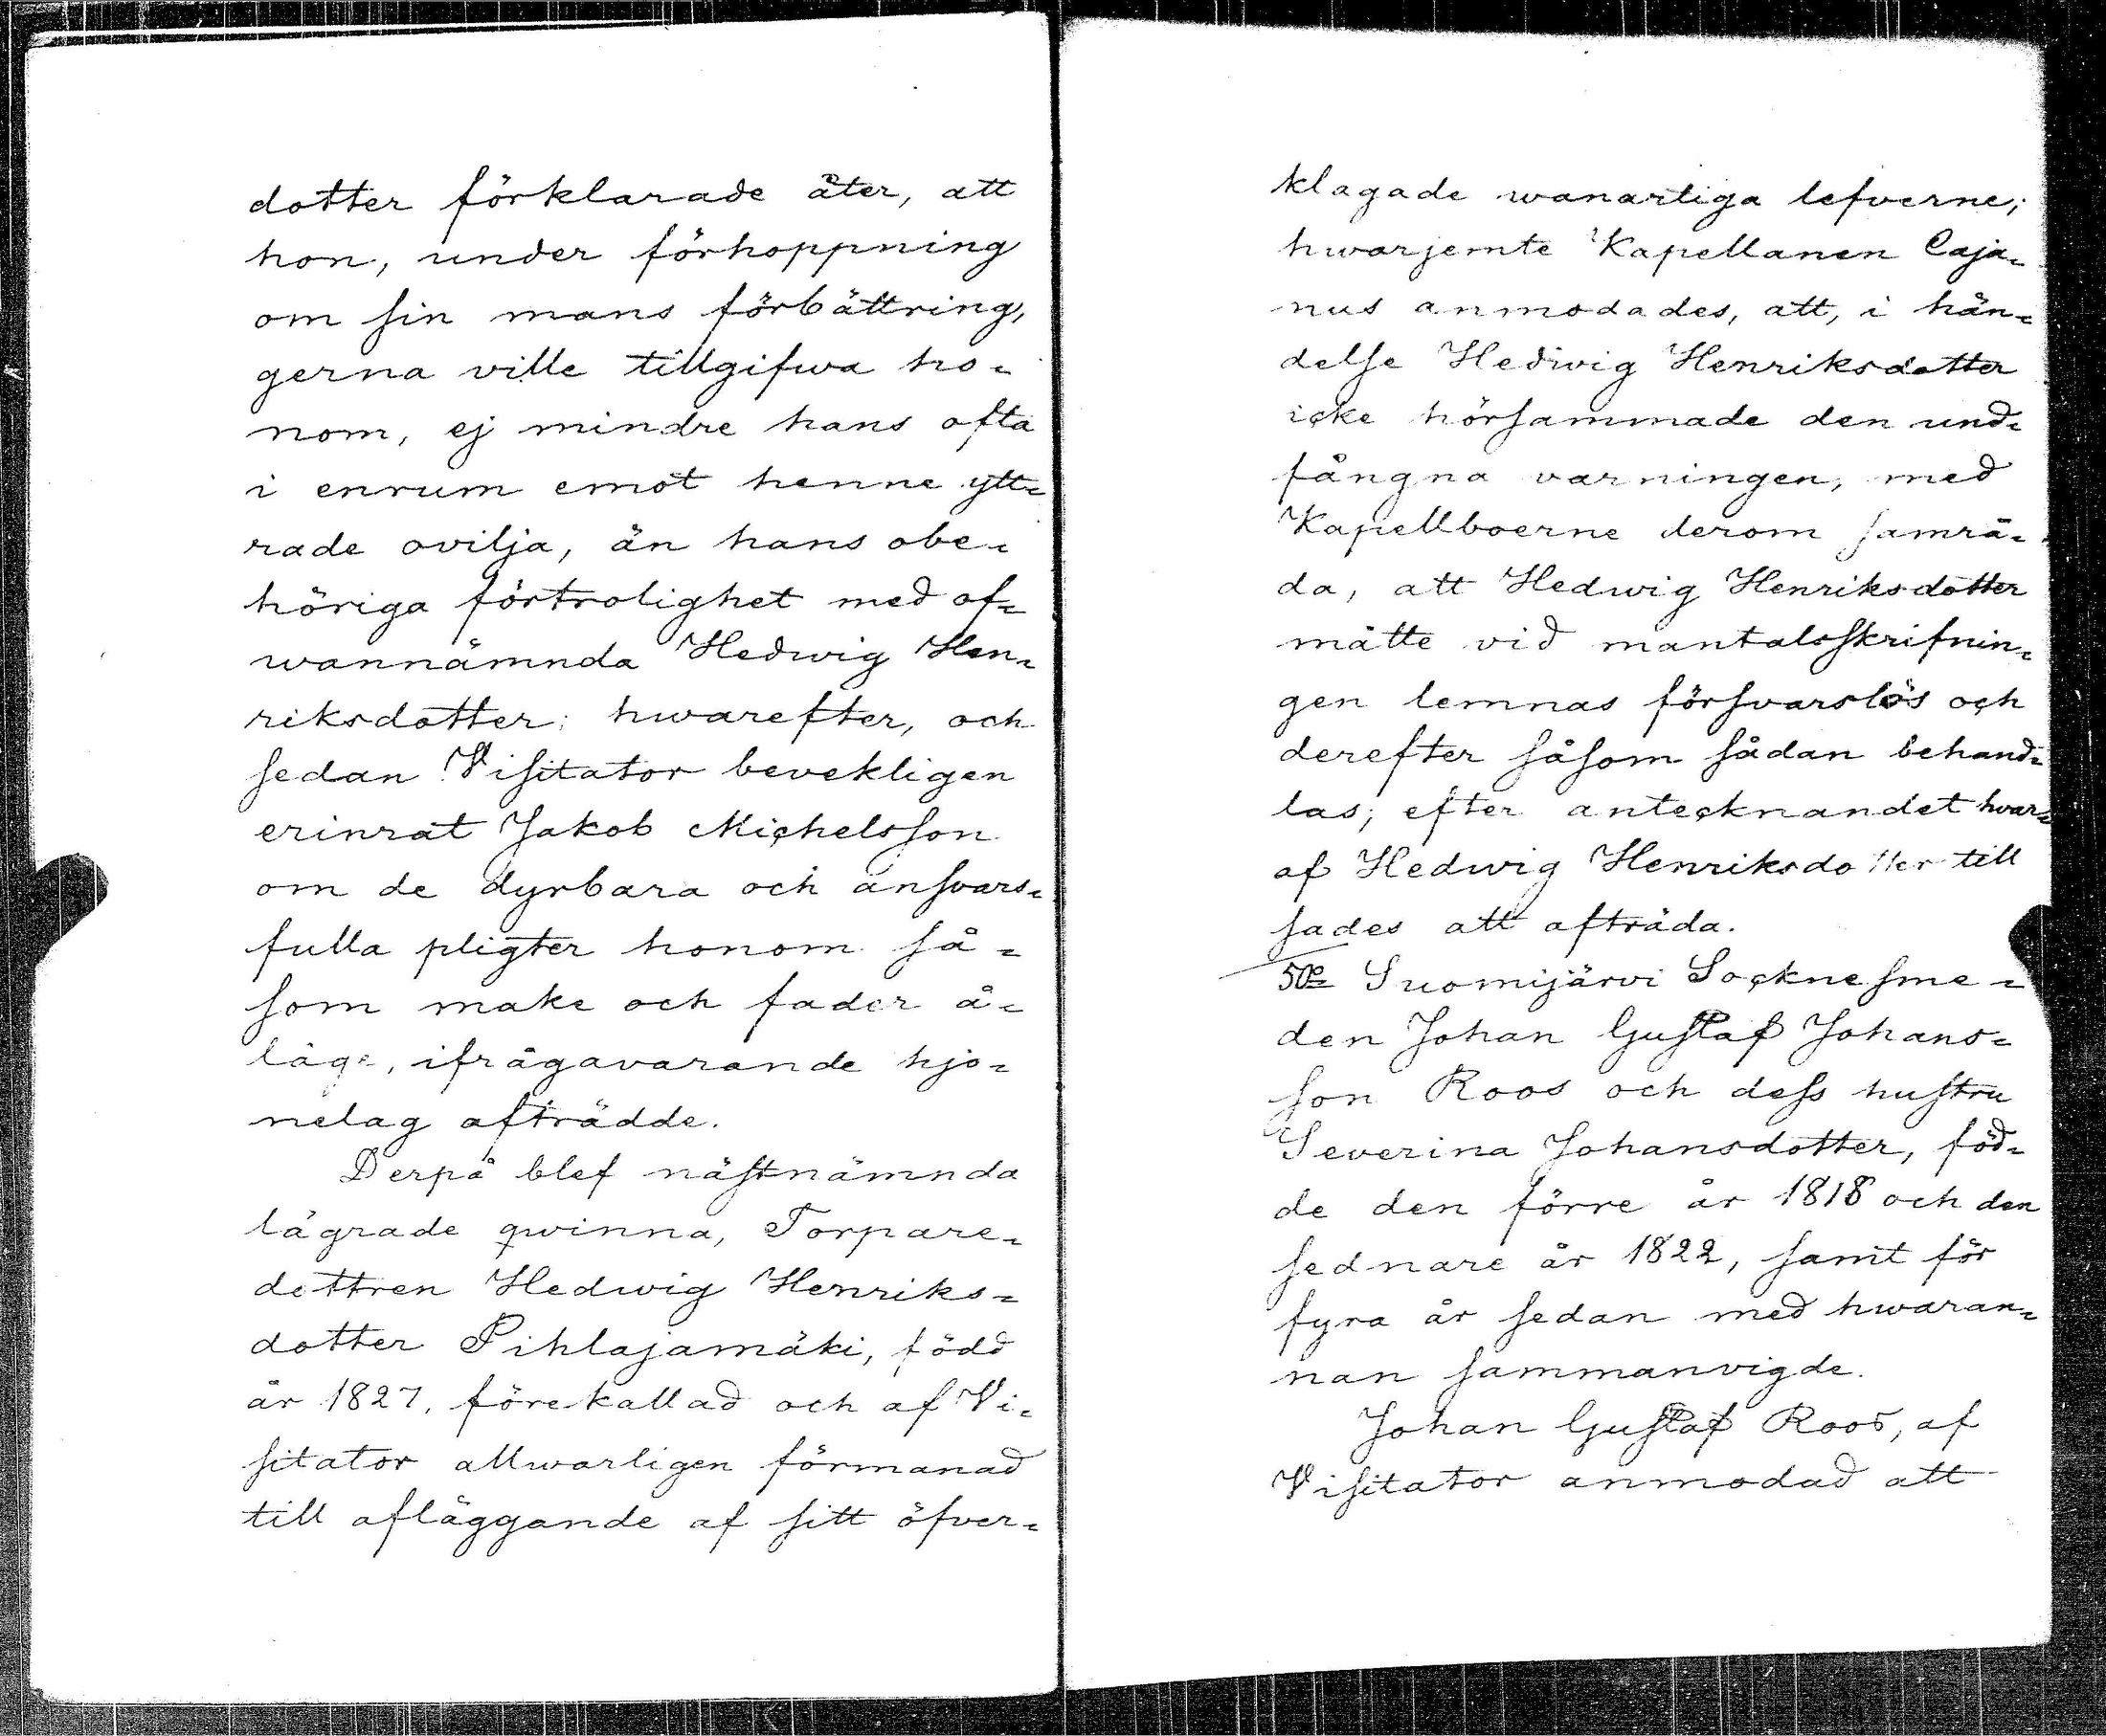 dotter förklarade åter, att
hon, under förhoppning
om sin mans förbättring,
gerna ville tillgifwa ho=
nom, ej mindre hans ofta
i enrum emot henne ytt=
rade ovilja, än hans obe=
höriga förtrolighet med of=
wannämnda Hedwig Hen=
riksdotter; hwarefter, och
sedan Visitator bevekligen
erinrat Jakob Michelsson
om de dyrbara och ansvars=
fulla pligter honom så=
som make och fader å=
låge, ifrågavarande hjo=
nelag afträdde.
Derpå blef nästnämnda
lägrade qwinna, Torpare=
dottren Hedwig Henriks=
dotter Pihlajamäki, född
år 1827, förekallad och af Vi=
sitator allwarligen förmanad
till afläggande af sitt öfver=
klagade wanartiga lefverne;
hwarjemte Kapellanen Caja=
nus anmodades, att, i hän=
delse Hedwig Henriksdotter
icke hörsammade den und=
fångna varningen, med
Kapellboerne derom samrå=
da, att Hedwig Henriksdotter
måtte vid mantalsskrifnin=
gen lemnas försvarslös och
derefter såsom sådan behand=
las; efter antecknandet hvar=
af Hedwig Henriksdotter till
sades att afträda.
5o Suomijärvi Socknesme=
den Johan Gustaf Johans=
son Roos och dess hustru
Severina Johansdotter, föd=
de den förre år 1818 och den
sednare år 1822, samt för
fyra år sedan med hwaran=
nan sammanvigde.
Johan Gustaf Roos, af
Visitator anmodad att